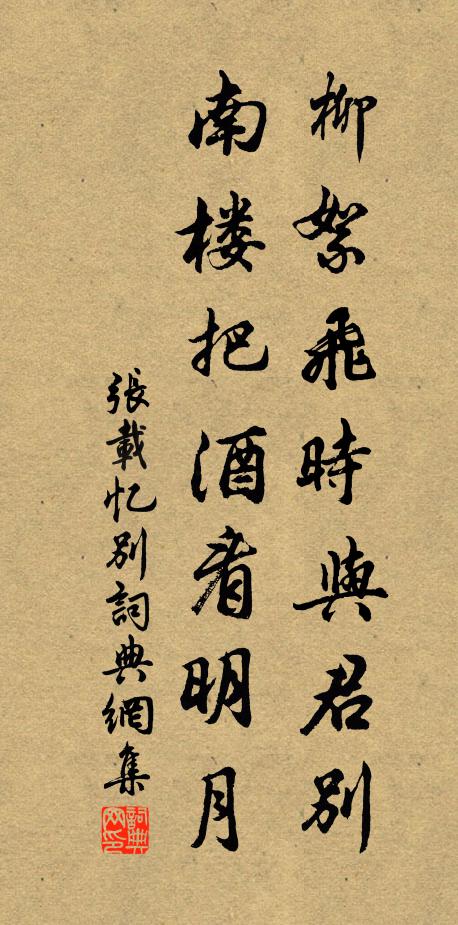 柳絮飛時與君別
南楼把酒看明月
張載忆別詞典網集
詞典网印